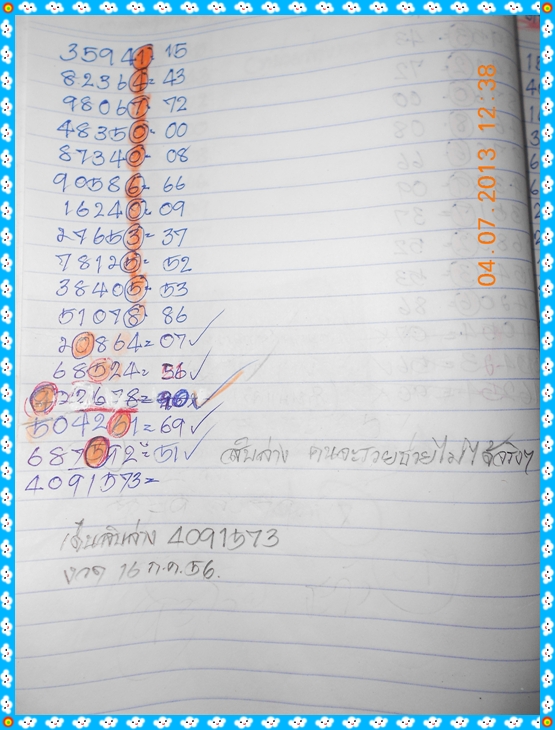 35941= 15
82364= 43
98067= 72
48350= 00
87340= 08
90586= 66
16240= 09
27653= 37
78125= 52
38405= 53
51078= 86
20864= 07✓
68524= 56✓
22678= ✓
504261= 69✓
687592= 51✓ สิบล่าง คนจะรวยช่วยไม่ได้จริงๆ
4091573=
เดินสิบล่าง 4091573
งวด 16 ก.ค.56.
04.07.2013 12:38